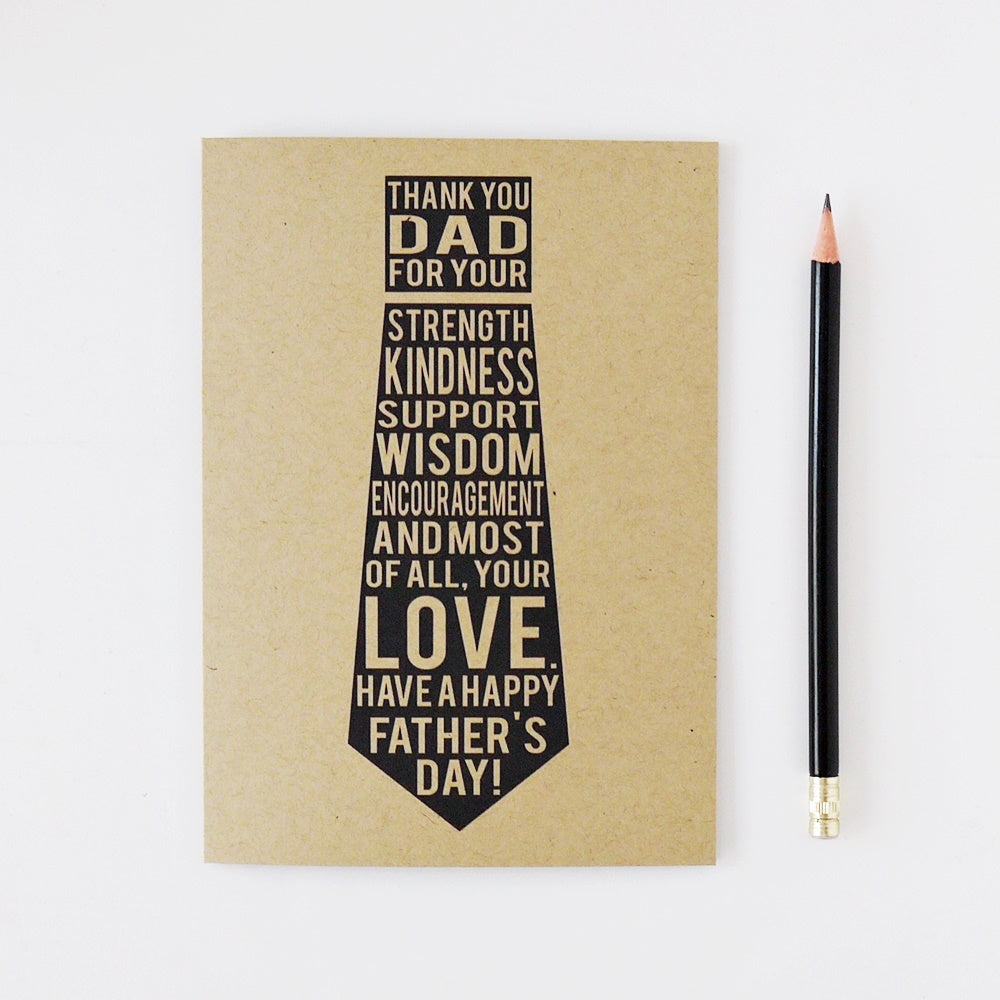 THANK YOU
DAD
FOR YOUR
STRENGTH
KINDNESS
SUPPORT
WISDOM
ENCOURAGEMENT
AND MOST
OF ALL, YOUR
LOVE.
HAVE A HAPPY
FATHER'S
DAY!